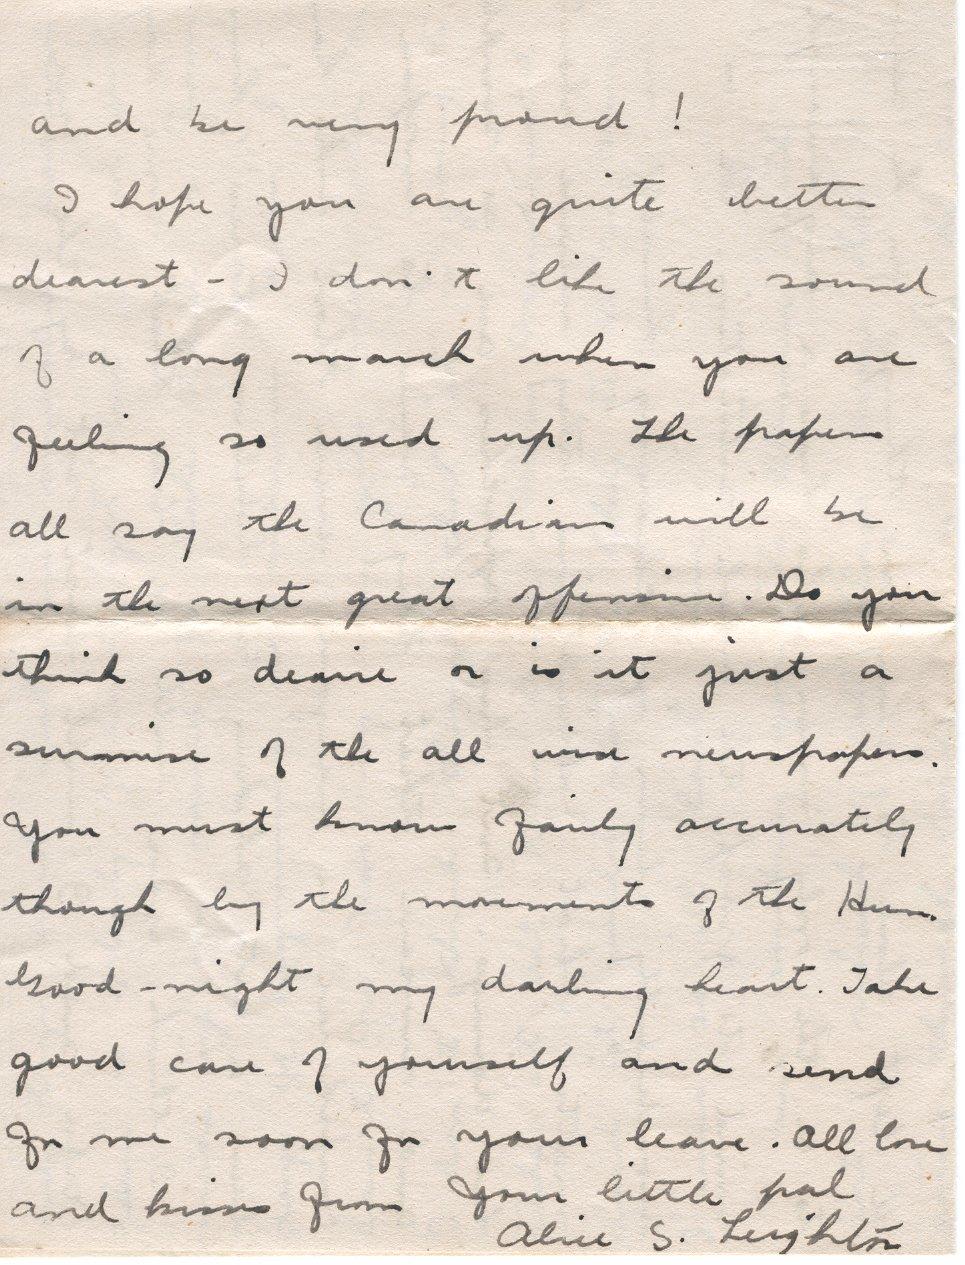 and be very proud !
I hope you are quite better
dearest - I don't like the sound
of a long march when you are
feeling so used up. The papers
all say the Canadians will be
in the next great offensive. Do you
think so dearie or is it just a
surmise of the all wise newspapers.
You must know fairly accurately
though by the movements of the Hun.
Good-night my darling heart. Take
good care of yourself and send
for me soon for your leave. All love
and kisses from Your little pal
Alice S. Leighton